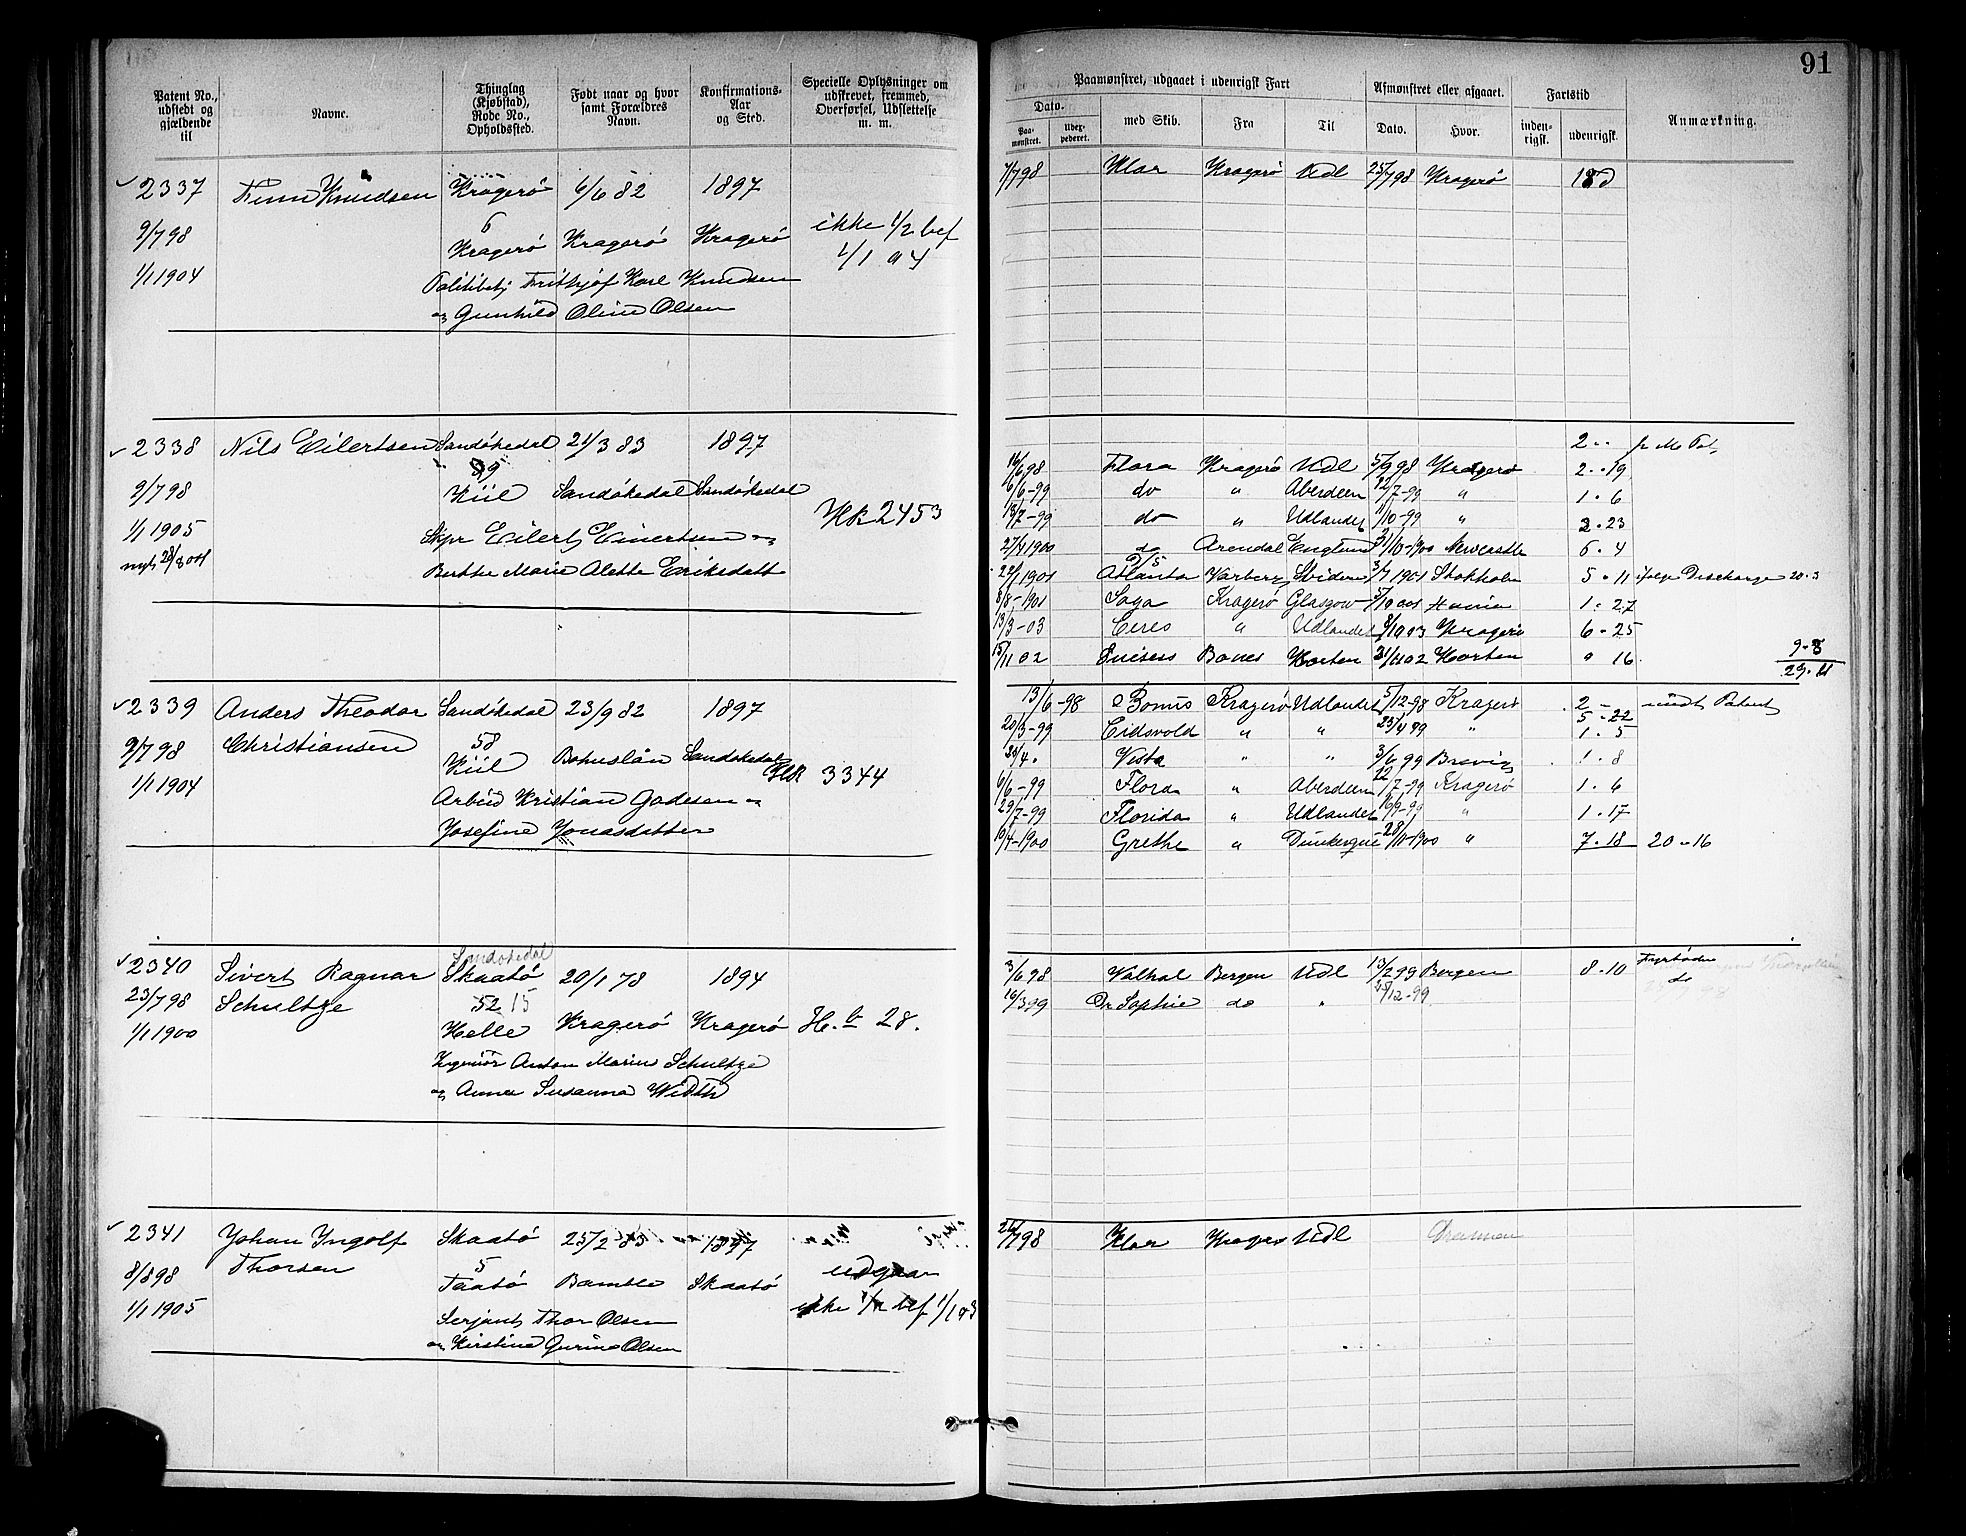 91
Patent No., udstedt og gjældende til
Navne.
Thinglag (Kjøbstad), Rode No., Opholdssted.
Født naar og hvor samt Forældres Navn.
Konfirmations-Aar og Sted.
Specielle Oplysninger om udskrevet, fremmed, Overførsel, Udslettelse m. m.
Paamønstret, udgaaet i udenrigsk Fart
Afmønstret eller afgaaet.
Fartstid
Anmærkning.
Dato.
Paa-mønstret.
Udex-pederet.
med Skib.
Fra
Til
Dato.
Hvor.
inden-rigsk.
udenrigsk.
2337 Finn Knudsen Kragerø 6/6 82 1897
6
9/7 98 Kragerø Kragerø Kragerø ikke 1/2 bef
1/1 1904 Politibetj Frithjof Karl Knudsen
og Gunhild Oline Olsen
7/7 98 Klar Kragerø Udl 25/7 98 Kragerø 18 d
2338 Nils Eilertsen Sandøkedal 21/3 83 1897
9/7 98 Kiil Sandøkedal Sandøkedal HR 2453
1/1 1905 Skpr Eilert Einertsen og
Berthe Marie Alette Eriksdatt
2
16/6 98 Flora Kragerø Udl 5/9 98 Kragerø 2 - 19
6/6 - 99 do " Aberdeen 12/7 - 99 " 1 - 6
18/7 - 99 do " Udlandet 1/10 - 99 " 2 - 23
27/4 1900 do Arendal England 31/10 - 1900 Newcastle 6 . 4
22/1 1901 Atlanta Varberg Sviden 3/7 1901 Stokholm 5 - 11 ifølge Discharge 20 - 3
8/8 - 1901 Saga Kragerø Glasgow 1 - 27
13/3 - 03 Ceres " Udlandet Kragerø 6 - 25
15/11 02 Bones Horten Horten " 16 9 - 8
2339 Anders Theodor Sandøkedal 23/9 82 1897
9/7 98 Christiansen 58
Kiil Bohuslän Sandøkedal HR 3344
1/1 1904 Arbeid Kristian Godesen og
Josefine Jonasdatter
13/6 - 98 Bonus Kragerø Udlandet 5/12 - 98 Kragerø 2 - indt Patent
5 - 22
20/3 - 99 Eidsvold " " 23/4 99 " 1 - 5
Vesta " " 3/6 99 Brevig 1 - 8
6/6 - 99 Flora " Aberdeen 12/7 - 99 Kragerø 1 - 6
29/7 - 99 Florida " Udlandet " 1 - 17
10/4 - 1900 Grethe " Dunkerque 28/11 - 1900 " 7 - 18 20 - 16
Sandøkedal
2340 Sivert Ragnar Skaatø 20/1 78 1894
23/7 98 Schultze 52 15
1/1 1900 Helle Kragerø Kragerø H. b 28.
Ingeniør Anton Marius Schultze
og Anna Susanna Width
3/6 98 Valhal Bergen Udl 13/2 99 Bergen 8 - 10 Fyrbøder
16/3 99 Dr Sophie do " 28/12 - 99. do
2341 Johan Ingolf Skaatø 25/2 83 1897
8/8 98 Thorsen 5
Taatø Bamble Skaatø udgaar
1/1 1905 ikke 1/2 bef 1/1 03
Serjant Thor Olsen
og Kirstine Gurine Olsen
26/7 98 Klar Kragerø Udl Drammen